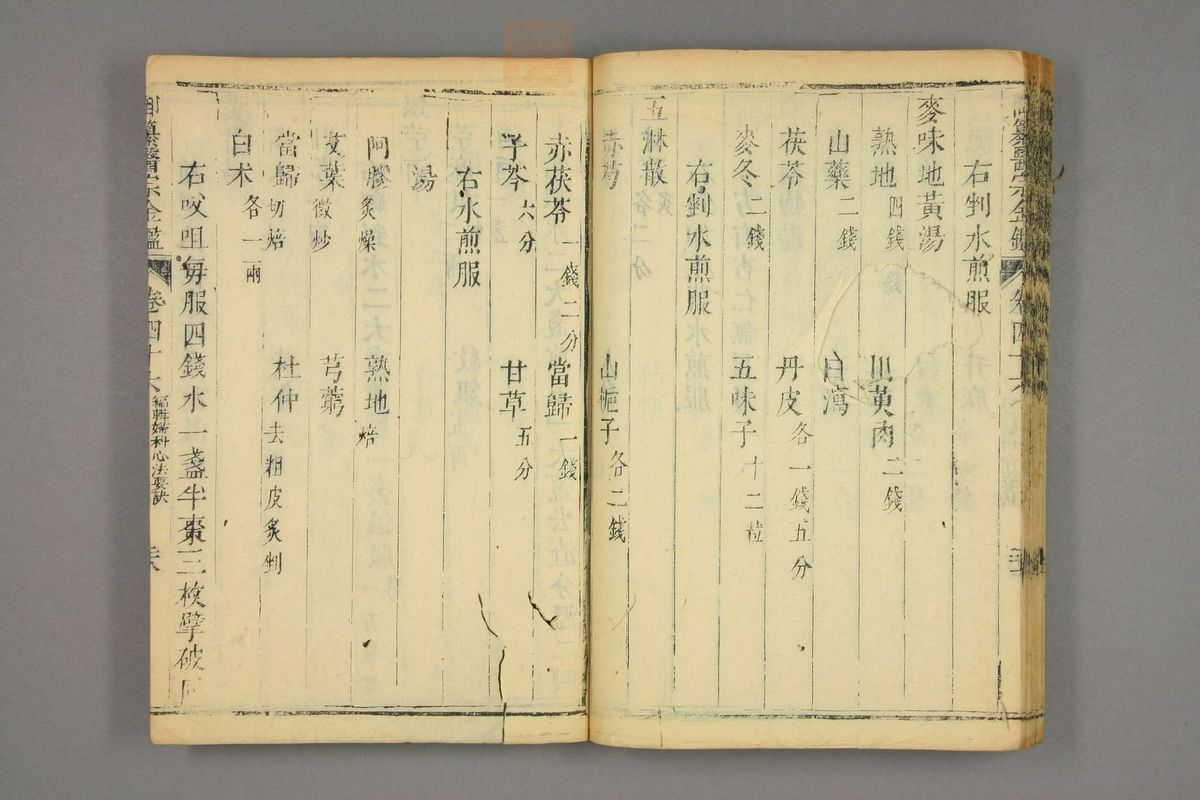 右剉水煎服
麥味地黃湯
熟地四錢 山萸肉二錢
山藥二錢 白瀉
茯苓 丹皮各一錢五分
麥冬二錢 五味子十二粒
右剉水煎服
五淋散
赤芍 山梔子各二錢
赤茯苓一錢二分 當歸一錢
子芩六分 甘草五分
右水煎服
湯
阿膠炙燥 熟地焙
艾葉微炒 芎藭
當歸切焙 杜仲去粗皮炙剉
白术各一兩
右㕮咀每服四錢水一盞半棗三枚擘破同
御纂醫宗金鑑 卷四十六 編輯婦科心法要訣